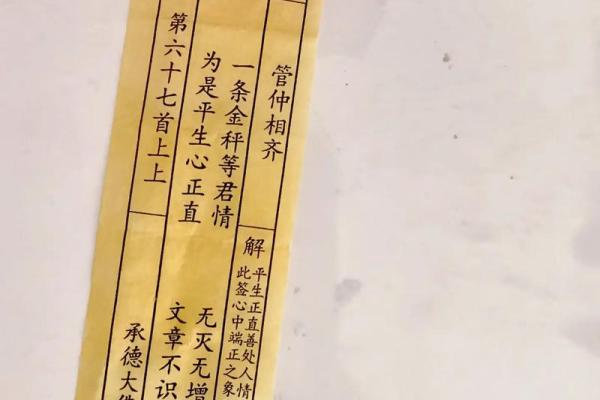 管仲相齐
解
平生正直善处人情
此签心中端正之象
一条金秤等君情
无灭无增
为是平生心正直
文章不识
第六十七首上上
承德大